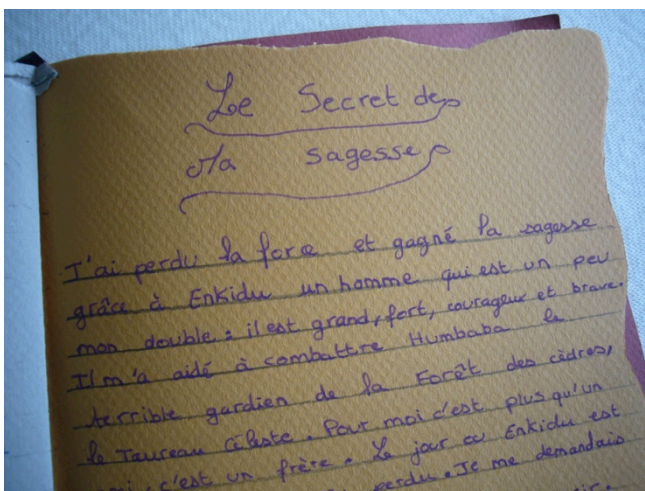 Le Secret de
Ma sagesse
J'ai perdu la force et gagné la sagesse
grâce à Enkidu un homme qui est un peu
mon double : il est grand, fort, courageux et brave.
Il m'a aidé à combattre Humbaba le
terrible gardien de la Forêt des cèdres,
le Taureau céleste. Pour moi c'est plus qu'un
ami, c'est un frère. Le jour où Enkidu est
perdu. Je me demandais